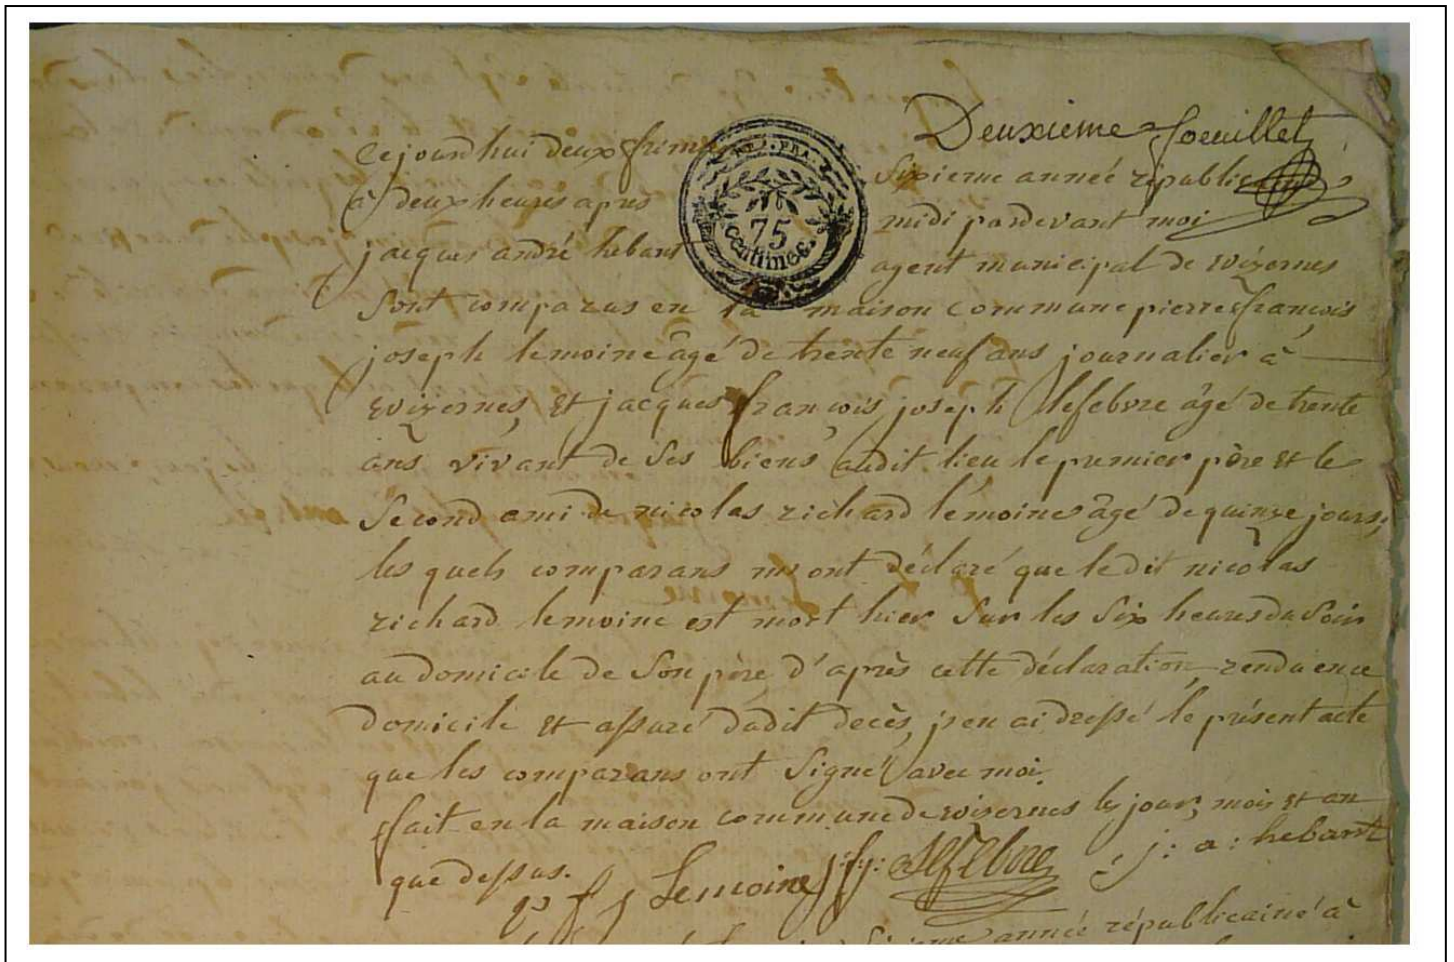 Deuxieme foeuillet
Cejourdhui deux frim sixieme année républicaine
à deux heures apres midi pardevant moi
jacques andré hebant agent municipal de wizernes
REP. FRA.
75
centimes.
sont comparus en la maison commune pierre françois
joseph lemoine âgé de trente neuf ans journalier à
wizernes, et jacques françois joseph lefebvre âgé de trente
ans vivant de ses biens audit lieu le premier père et le
second ami de nicolas richard lemoine âgé de quinze jours,
les quels comparans m'ont déclaré que ledit nicolas
richard lemoine est mort hier sur les six heures du soir
au domicile de son père d'après cette déclaration, rendu en ce
domicile et assuré dudit decès, j'en ai dressé le présent acte
que les comparans ont signé avec moi.
fait en la maison commune de wizernes les jour, mois et an
que dessus. p f j Lemoine j: f: j: Lefebvre j: a: hebant
sixieme année républicaine à